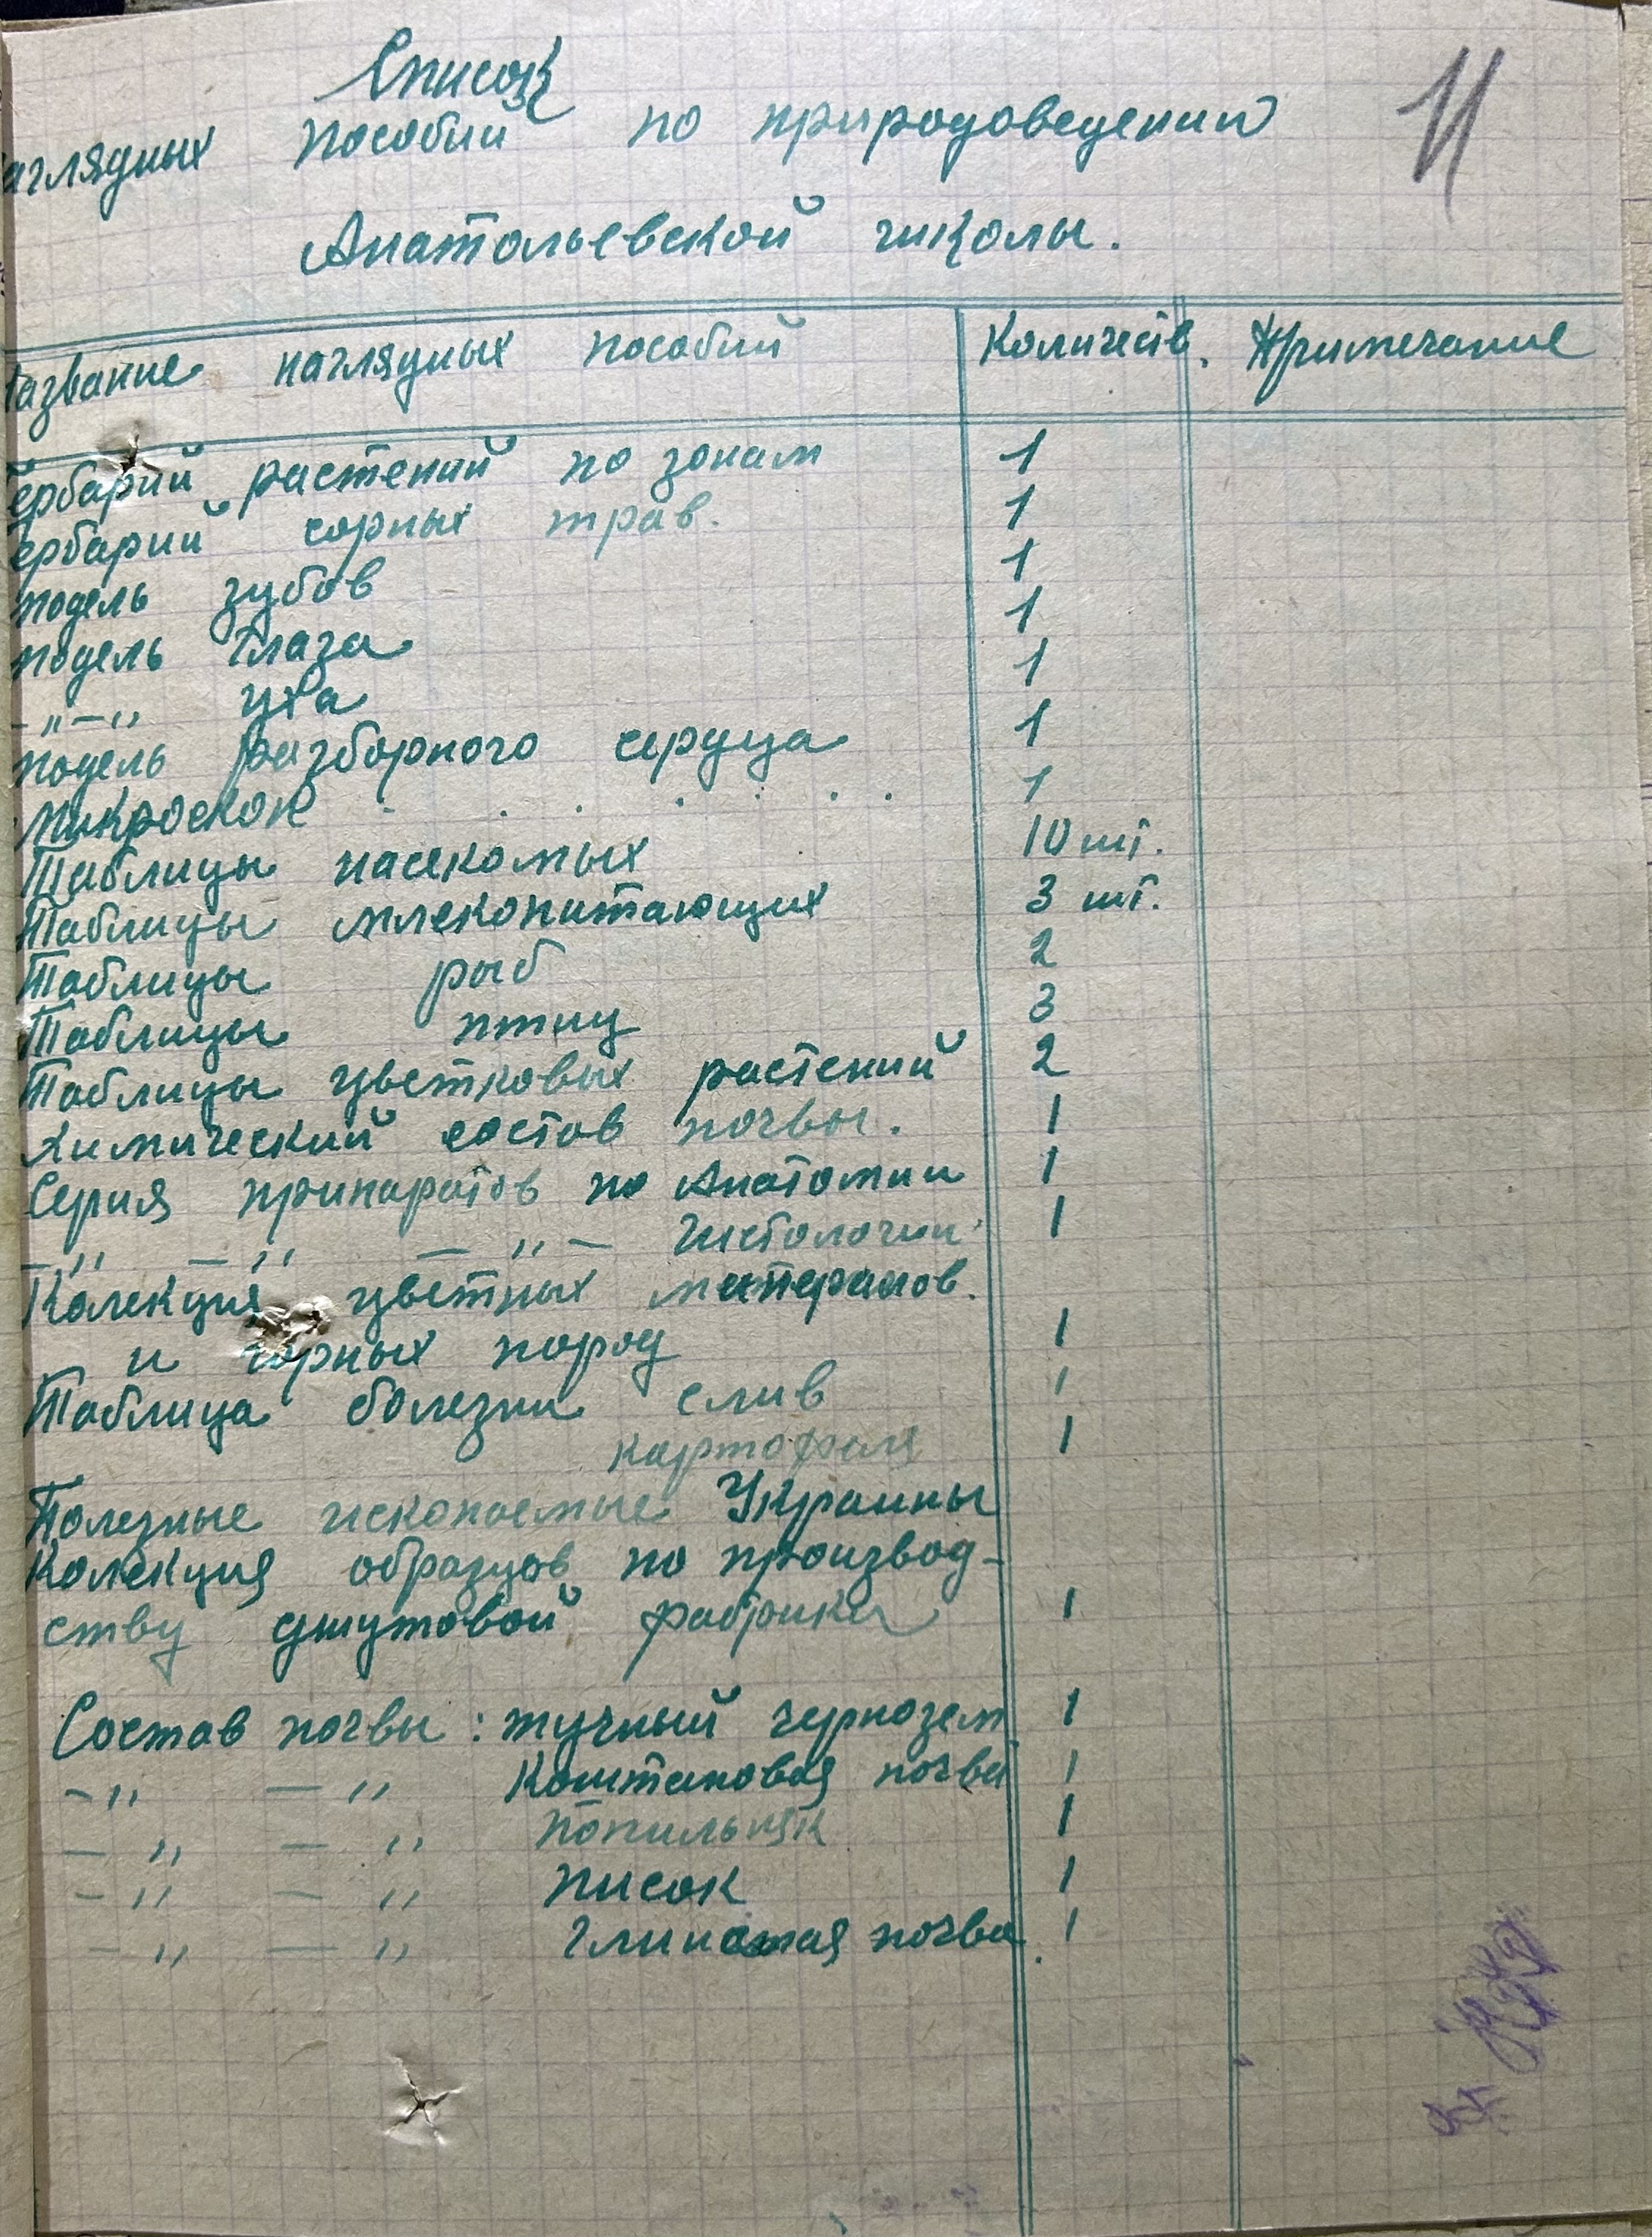 Список
11
аглядных пособий по природоведению
Анатольевской школы.
Название наглядных пособий Количеств. Примечание
Гербарий растений по зонам 1
Гербарий сорных трав. 1
модель зубов 1
модель Глаза 1
-"-" уха 1
модель разборного сердца 1
Микроскоп . . . . . . 1
Таблицы насекомых 10 шт.
Таблицы млекопитающих 3 шт.
Таблицы рыб 2
Таблицы птиц 3
Таблицы цветковых растений 2
Химический состов почвы. 1
Серия припаратов по Анатомии 1
-" -" -"- Гистологии 1
Колекция цветных материалов.
и горных пород 1
Таблица болезни слив 1
картофеля 1
Полезные ископаемые Украины
Колекция образцов по производ-
ству джутовой фабрики 1
Состав почвы: тучный чернозем 1
-" -" Каштановая почва 1
-" -" Попильняк 1
-" -" писок 1
-" -" Глинистая почва. 1